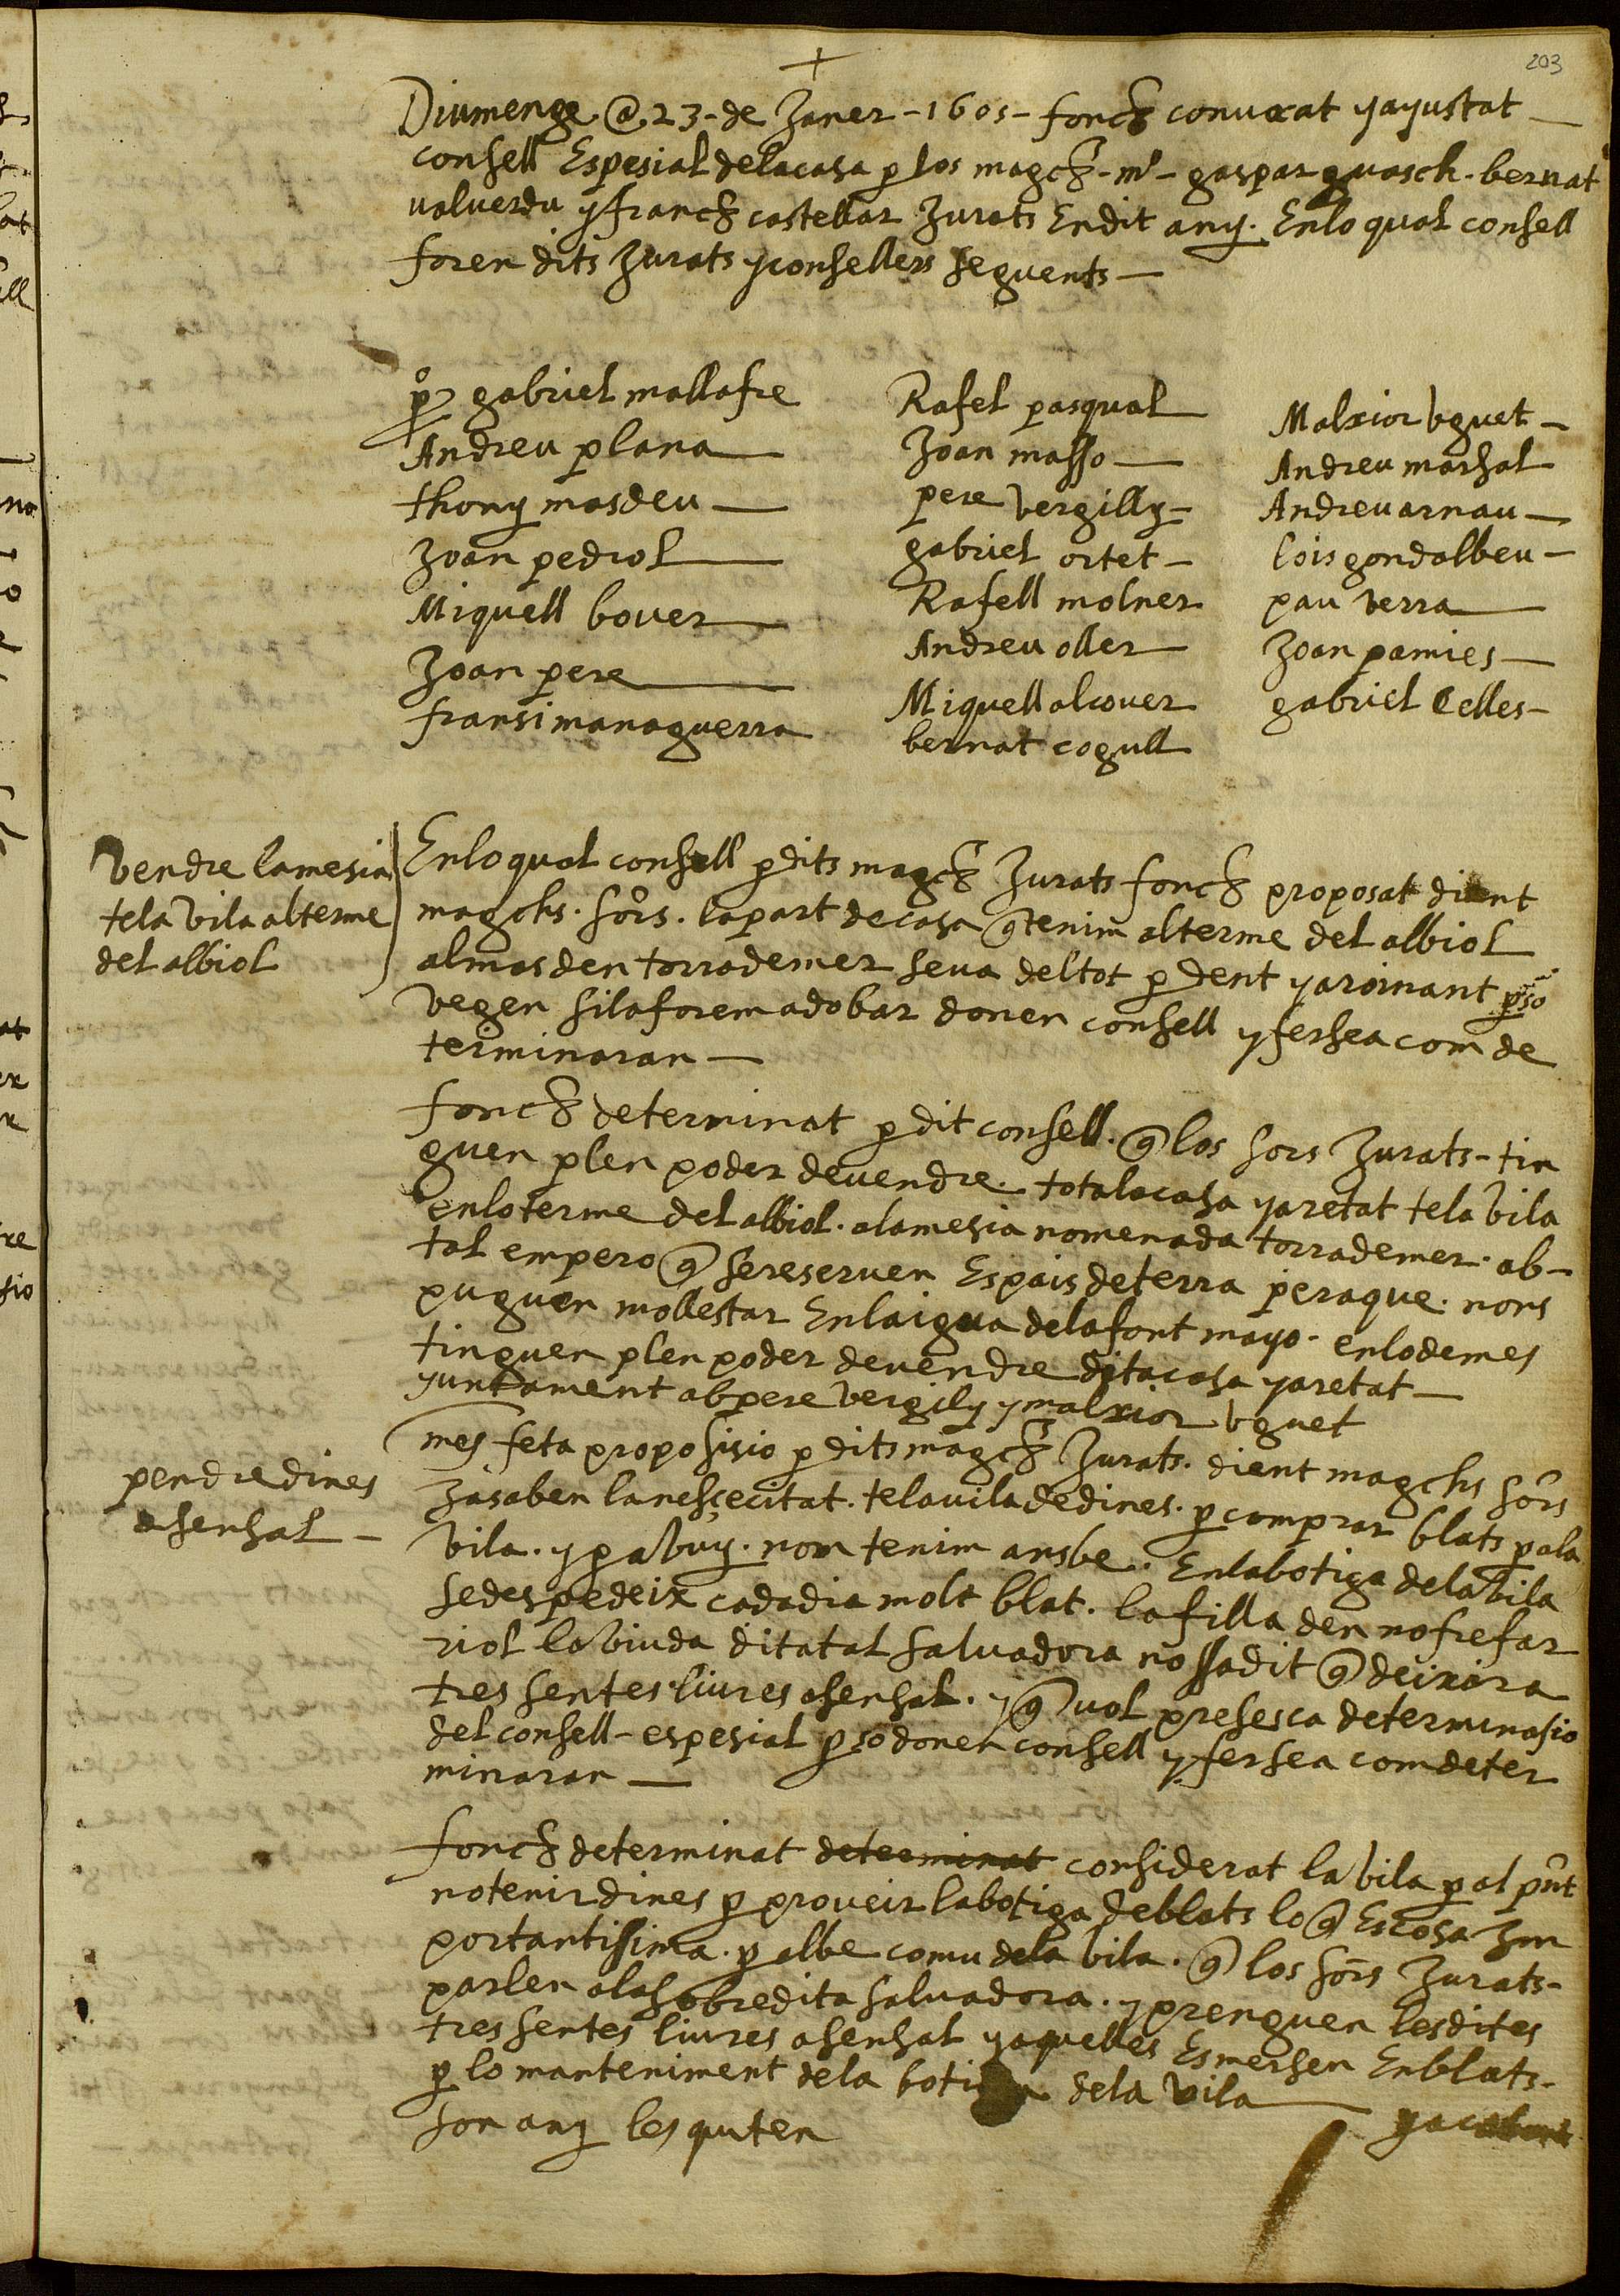 203
Diumenge @ 23 - de Janer - 1605 - fonch convocat y ayustat
consell Espesial dela casa p los magchs - mº - gaspar guasch . bernat
valverdu y franch castellar Jurats En dit any . En lo qual consell
foren dits Jurats y consellers seguents —
pº gabriel mallafre
Andreu plana
thony masdeu —
Joan pedrol
Miquell bover
Joan pere
fransi managuerra
Rafel pasqual
Joan masso —
pere vergilly -
gabriel ortet -
Rafell molner
Andreu oller
Miquell alcover
bernat cogull
Malxior uguet -
Andreu marsal
Andreu arnau —
lois gondalbeu -
pau verra
Joan pamies —
gabriel Celles -
Vendre la mesia
te la vila al terme
del albiol
En lo qual consell p dits magchs Jurats fonch proposat dient
magchs . sors . la part de casa q tenim al terme del albiol
al mas den torrademer se va del tot p dent y aroinant pso
vegen si la forem adobar donen consell y fer sea com de
terminaran —
fonch determinat p dit consell . q los sors Jurats - tin
guen plen poder de vendre . tota la casa y aretat te la vila
en lo terme del albiol . a la mesia nomenada torrademer . ab -
tal empero q se reserven Espais de terra pera que . nons
puguen mollestar En laigua de la font mayo . en lo demes
tinguen plen poder de vendre dita casa y aretat —
yuntament ab pere vergily y malxior uguet
pendre dines
a sensal -
mes feta proposisio p dits magchs Jurats . dient magchs sors
Ja saben la nessecitat . te la vila de dines . p comprar blats p a la
vila . y p a vuy . non tenim ans be . En la botiga dela vila
se despedeix cada dia molt blat . la filla den nofre far
riol la viuda dita tal salvadora nos sa dit q deixara
tres sentes liures a sensal . y q vol presesca determinasio
del consell - espesial p so donen consell y fer sea com deter
minaran —
fonch determinat determinat considerat la vila p al pnt
no tenir dines p proveir la botiga de blats lo q Es cosa Jm
portantisima . p al be comu dela vila . q los sors Jurats -
parlen a la sobredita salvadora . y prenguen les dites
tres sentes liures a sensal y aquelles Esmersen En blats -
p lo manteniment dela botiga dela vila — y acabant
son any les quten